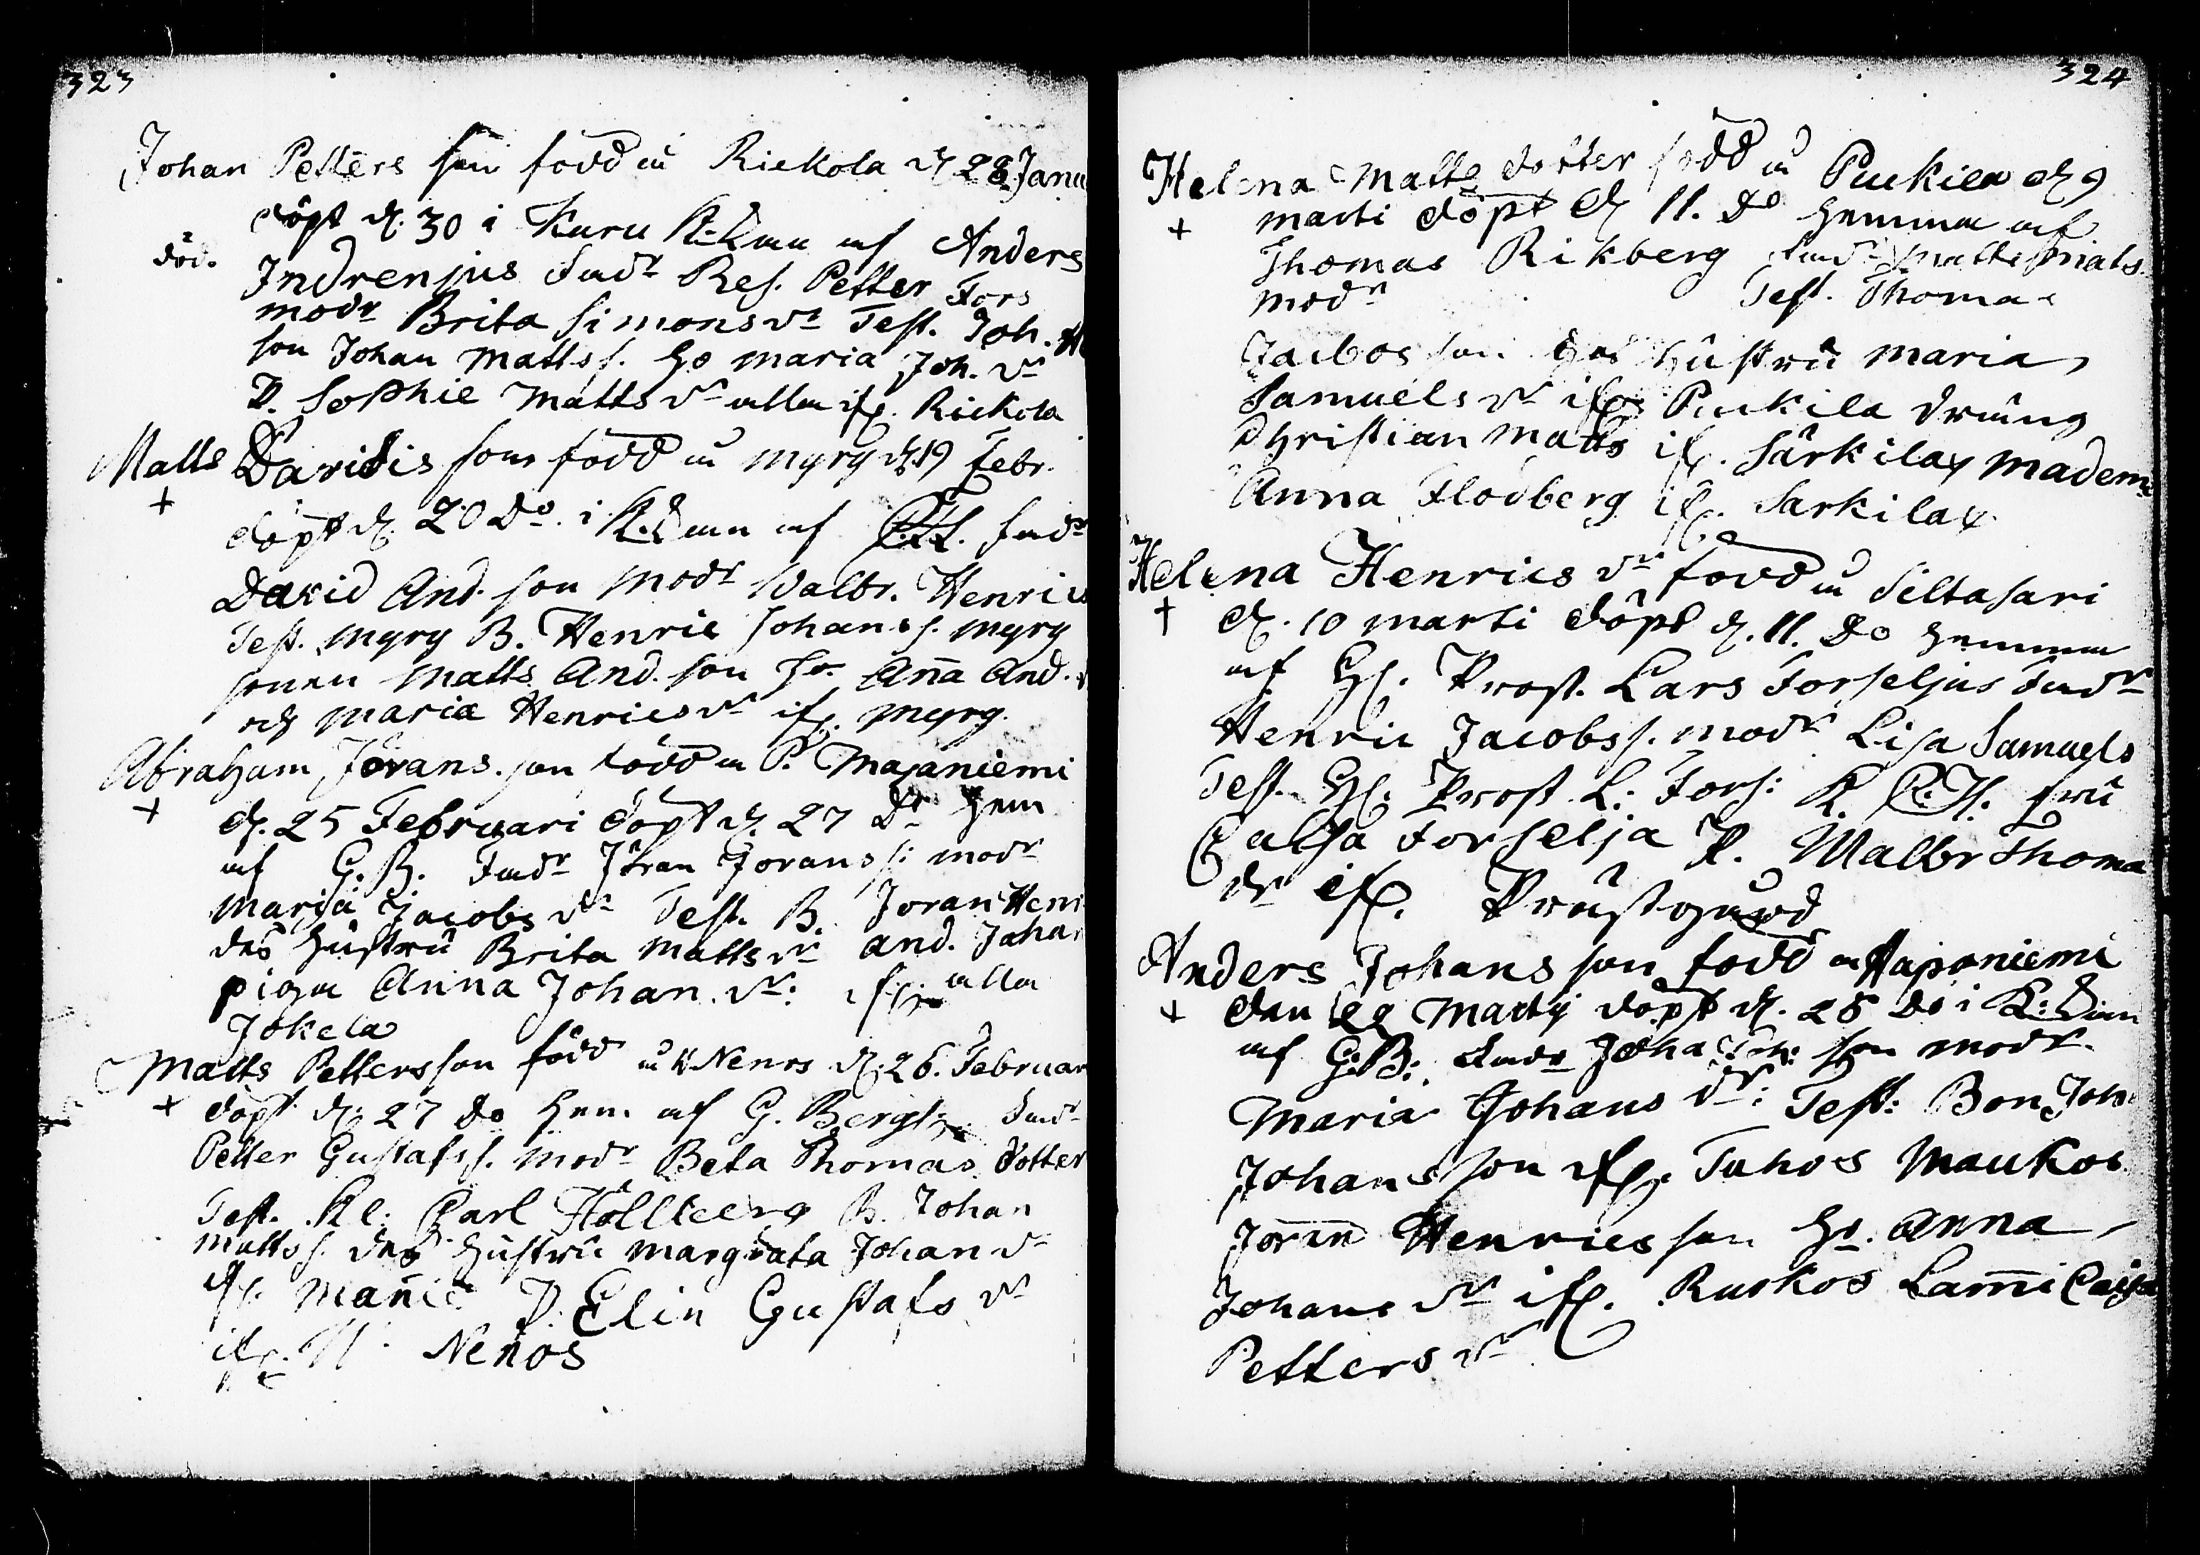 323
Johan Petters son född i Rickola d. 28 Janu
döpt d. 30 i Kuru af Anders
död.
Indrenius Fadr Res. Petter Fors
modr Brita Simonsdr Test. Joh.
son Johan Mattss. Ho Maria Joh. dr
P. Sophie Mattsdr alla if. Rickola
Matts Davidis son född i Myry d. 19 Febr.
+
döpt d. 20 Do. i af Fadr
David And. son Modr Walbr. Henrics
Test. Myry B. Henric Johanss. Myry
sonen Matts And. son Ho. Aña And.
och Maria Henricsdr if. Myry.
Abraham Jörans son född i P. Majaniemi
+
d. 25 Februari döpt d. 27 Do hem
af G. B. Fadr Jöran Joranss: modr
Maria Jacobsdr Test. B. Joran Hen
des hustru Brita Mattsdr And. Johan
piga Anna Johan. dr: if. alla
Jokela
Matts Pettersson född i Nenos d. 26. Februar
+
döpt d: 27 Do hem af G. Bergh Fadr
Petter Gustafss. Modr Beta Thomas dotter
Test. Kl: Carl Höllberg B. Johan
Mattss. des hustru Margrata Johan dr
if. Mañic P. Elin Gustafs dr
if. Neños
324
Helena Matts dotter född i Puckila d. 9
+
marti döpt d. 11. Do hemma af
Thomas Rikberg Fadr Matts Mats.
modr Test. Thomas
Jacobos son des hustru Maria
Samuels dr if. Puckila dräng
Christian Matts if. Särkilax madem
Anna Flodberg if. Sarkilax
Helena Henrics dr född i Siltasari
+
d. 10 marti döpt d. 11. Do hemma
af H. Prost. Lars Forseljus Fadr
Henric Jacobss. modr Lisa Samuels
Test. H. Prost L: Fors: fru
Caisa Forselja P. Walbr Thoma
dr if. Pråstgård
Anders Johans son född i Haponiemi
+
den 28 Martij döpt d. 28 Do i
af G: B: Fadr Joha Joh: son modr.
Maria Johans dr: Test: Bon Joh
Johansson if. Tuhos Maukos
Joran Henrics son Ho. Anna
Johans dr if. Ruokos Lam̃i Caisa
Petters dr